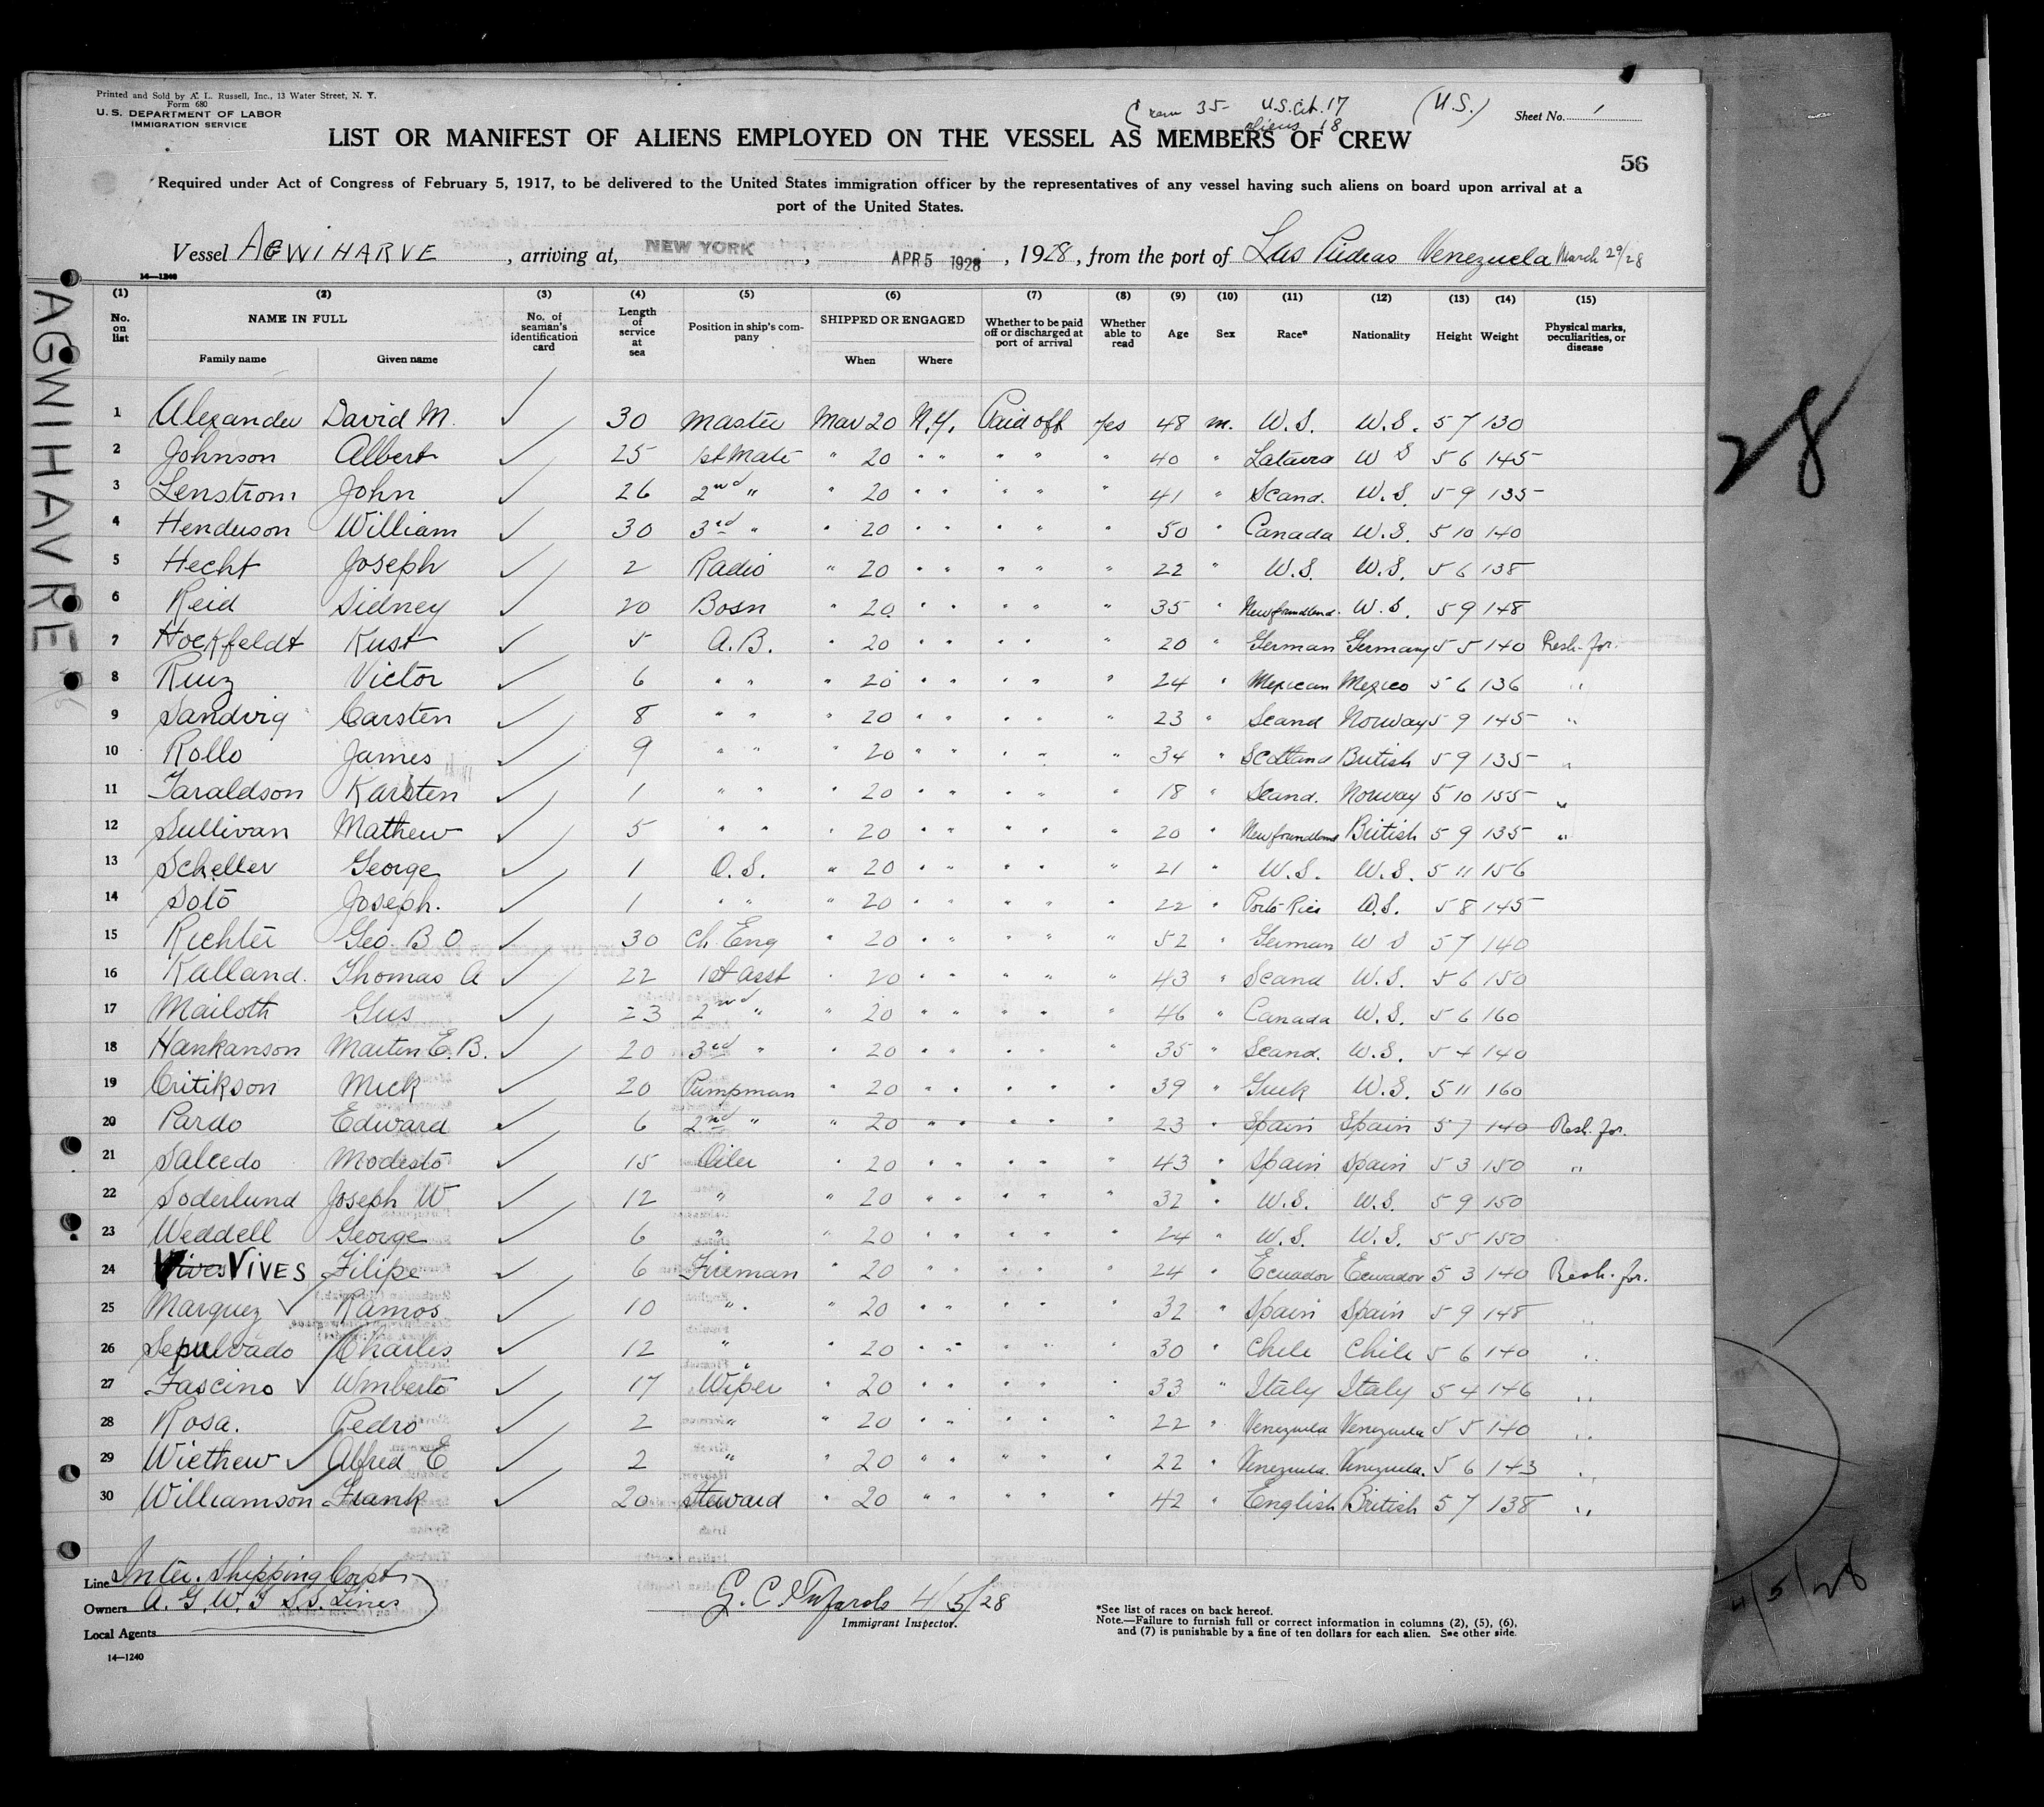 Printed and Sold by A. L. Russell, Inc., 13 Water Street, N. Y.
Form 680
U. S. DEPARTMENT OF LABOR
IMMIGRATION SERVICE
Crew 35- U.S. Cit. 17 (U.S.) Sheet No. 1
Aliens 18
LIST OR MANIFEST OF ALIENS EMPLOYED ON THE VESSEL AS MEMBERS OF CREW
56
Required under Act of Congress of February 5, 1917, to be delivered to the United States immigration officer by the representatives of any vessel having such aliens on board upon arrival at a
port of the United States.
Vessel AGWIHARVE, arriving at, NEW YORK, APR 5 1928, 1928, from the port of Las Piedras Venezuela March 29/28
14—1240
(1) (2) (3) (4) (5) (6) (7) (8) (9) (10) (11) (12) (13) (14) (15)
No. on list NAME IN FULL Family name Given name No. of seaman's identification card Length of service at sea Position in ship's company SHIPPED OR ENGAGED When Where Whether to be paid off or discharged at port of arrival Whether able to read Age Sex Race* Nationality Height Weight Physical marks, peculiarities, or disease
1 Alexander David M. ✓ 30 Master Mar 20 N.Y. Paid off Yes 48 m. U.S. U.S. 5 7 130
2 Johnson Albert ✓ 25 1st Mate " 20 " " " " " 40 " Latavia U S 5 6 145
3 Lenstrom John ✓ 26 2nd " " 20 " " " " " 41 " Scand. U.S. 5 9 135
4 Henderson William ✓ 30 3rd " " 20 " " " " " 50 " Canada U.S. 5 10 140
5 Hecht Joseph ✓ 2 Radio " 20 " " " " " 22 " U.S. U.S. 5 6 138
6 Reid Sidney ✓ 20 Bosn " 20 " " " " " 35 " Newfoundland. U.S. 5 9 148
7 Hockfeldt Kust ✓ 5 A.B. " 20 " " " " " 20 " German Germany 5 5 140 Resh. for.
8 Ruiz Victor ✓ 6 " " " 20 " " " " " 24 " Mexican Mexico 5 6 136 "
9 Sandvig Carsten ✓ 8 " " " 20 " " " " " 23 " Scand Norway 5 9 145 "
10 Rollo James ✓ 9 " " " 20 " " " " " 34 " Scotland British 5 9 135 "
11 Taraldson Karsten ✓ 1 " " " 20 " " " " " 18 " Scand. Norway 5 10 155 "
12 Sullivan Mathew ✓ 5 " " " 20 " " " " " 20 " Newfoundland British 5 9 135 "
13 Scheller George ✓ 1 O.S. " 20 " " " " " 21 " U.S. U.S. 5 11 156
14 Soto Joseph. ✓ 1 " " " 20 " " " " " 22 " Porto Rico U.S. 5 8 145
15 Richter Geo. B O ✓ 30 Ch. Eng " 20 " " " " " 52 " German U S 5 7 140
16 Kalland. Thomas A ✓ 22 1st asst " 20 " " " " " 43 " Scand U.S. 5 6 150
17 Mailoth Gus ✓ 23 2nd " " 20 " " " " " 46 " Canada U.S. 5 6 160
18 Hankanson Marten E.B. ✓ 20 3rd " " 20 " " " " " 35 " Scand. U.S. 5 4 140
19 Critikson Mick ✓ 20 Pumpman " 20 " " " " " 39 " Greek U.S. 5 11 160
20 Pardo Edward ✓ 6 2nd " " 20 " " " " " 23 " Spain Spain 5 7 140 Resh. for.
21 Salcedo Modesto ✓ 15 Oiler " 20 " " " " " 43 " Spain Spain 5 3 150 "
22 Soderlund Joseph W ✓ 12 " " 20 " " " " " 32 " U.S. U.S. 5 9 150
23 Weddell George ✓ 6 " " 20 " " " " " 24 " U.S. U.S. 5 5 150
24 Vives VIVES Filipe ✓ 6 Fireman " 20 " " " " " 24 " Ecuador Ecuador 5 3 140 Resh. for.
25 Marquez ✓ Ramos ✓ 10 " " 20 " " " " " 32 " Spain Spain 5 9 148 "
26 Sepulvado ✓ Charles ✓ 12 " " 20 " " " " " 30 " Chile Chile 5 6 140 "
27 Fascino ✓ Umberto ✓ 17 Wiper " 20 " " " " " 33 " Italy Italy 5 4 146 "
28 Rosa. Pedro ✓ 2 " " 20 " " " " " 22 " Venezuela Venezuela 5 5 140 "
29 Wiethew ✓ Alfred E ✓ 2 " " 20 " " " " " 22 " Venezuela. Venezuela. 5 6 143 "
30 Williamson Frank ✓ 20 Steward " 20 " " " " " 42 " English British 5 7 138 "
Line Inter. Shipping Corpt
Owners A. G. W. I S.S. Lines
Local Agents
4/5/28
Immigrant Inspector.
*See list of races on back hereof.
Note.—Failure to furnish full or correct information in columns (2), (5), (6),
and (7) is punishable by a fine of ten dollars for each alien. See other side.
14—1240
AGWIHAVRE
28
4/5/28